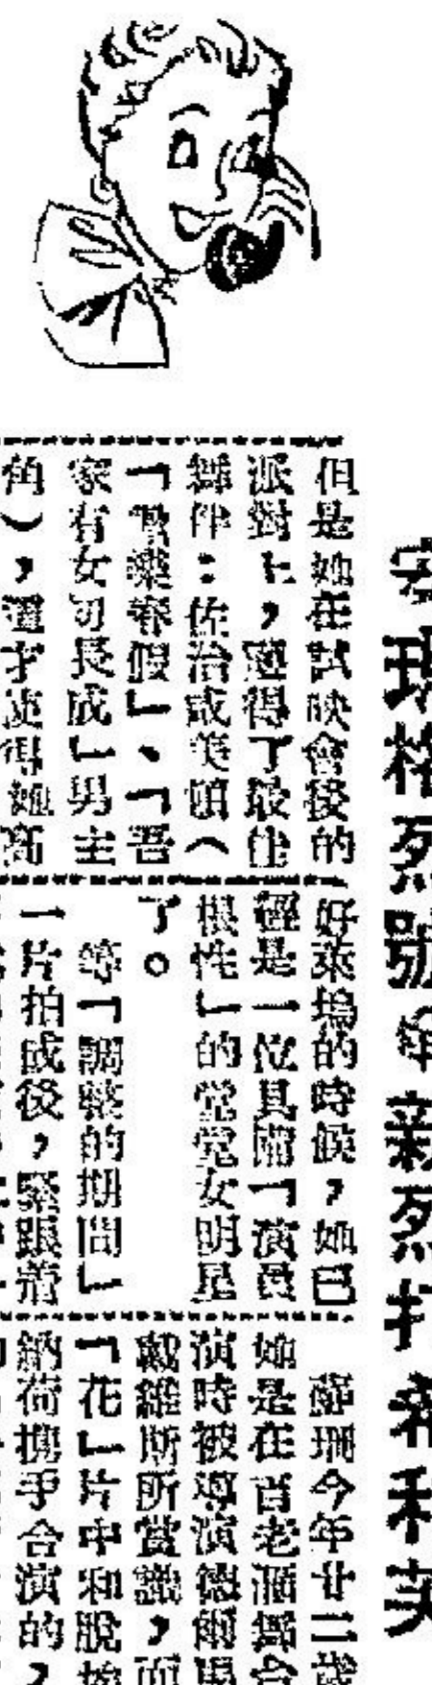 瑞格烈號年新烈打希利芙
但是她在試映會後的
派對上，獲得了最佳
舞伴：佐治咸美頓（
「歡樂春假」、「吾
家有女初長成」男主
角），這才使得她高
好萊塢的時候，她已
經是一位具備「演員
根性」的堂堂女明星
了。
等「調整的期間」
一片拍成後，緊跟着
蘇珊今年廿二歲
她是在百老滙舞台
演時被導演德爾馬
戴維斯所賞識，而
「花」片中和脫
納荷攜手合演的，